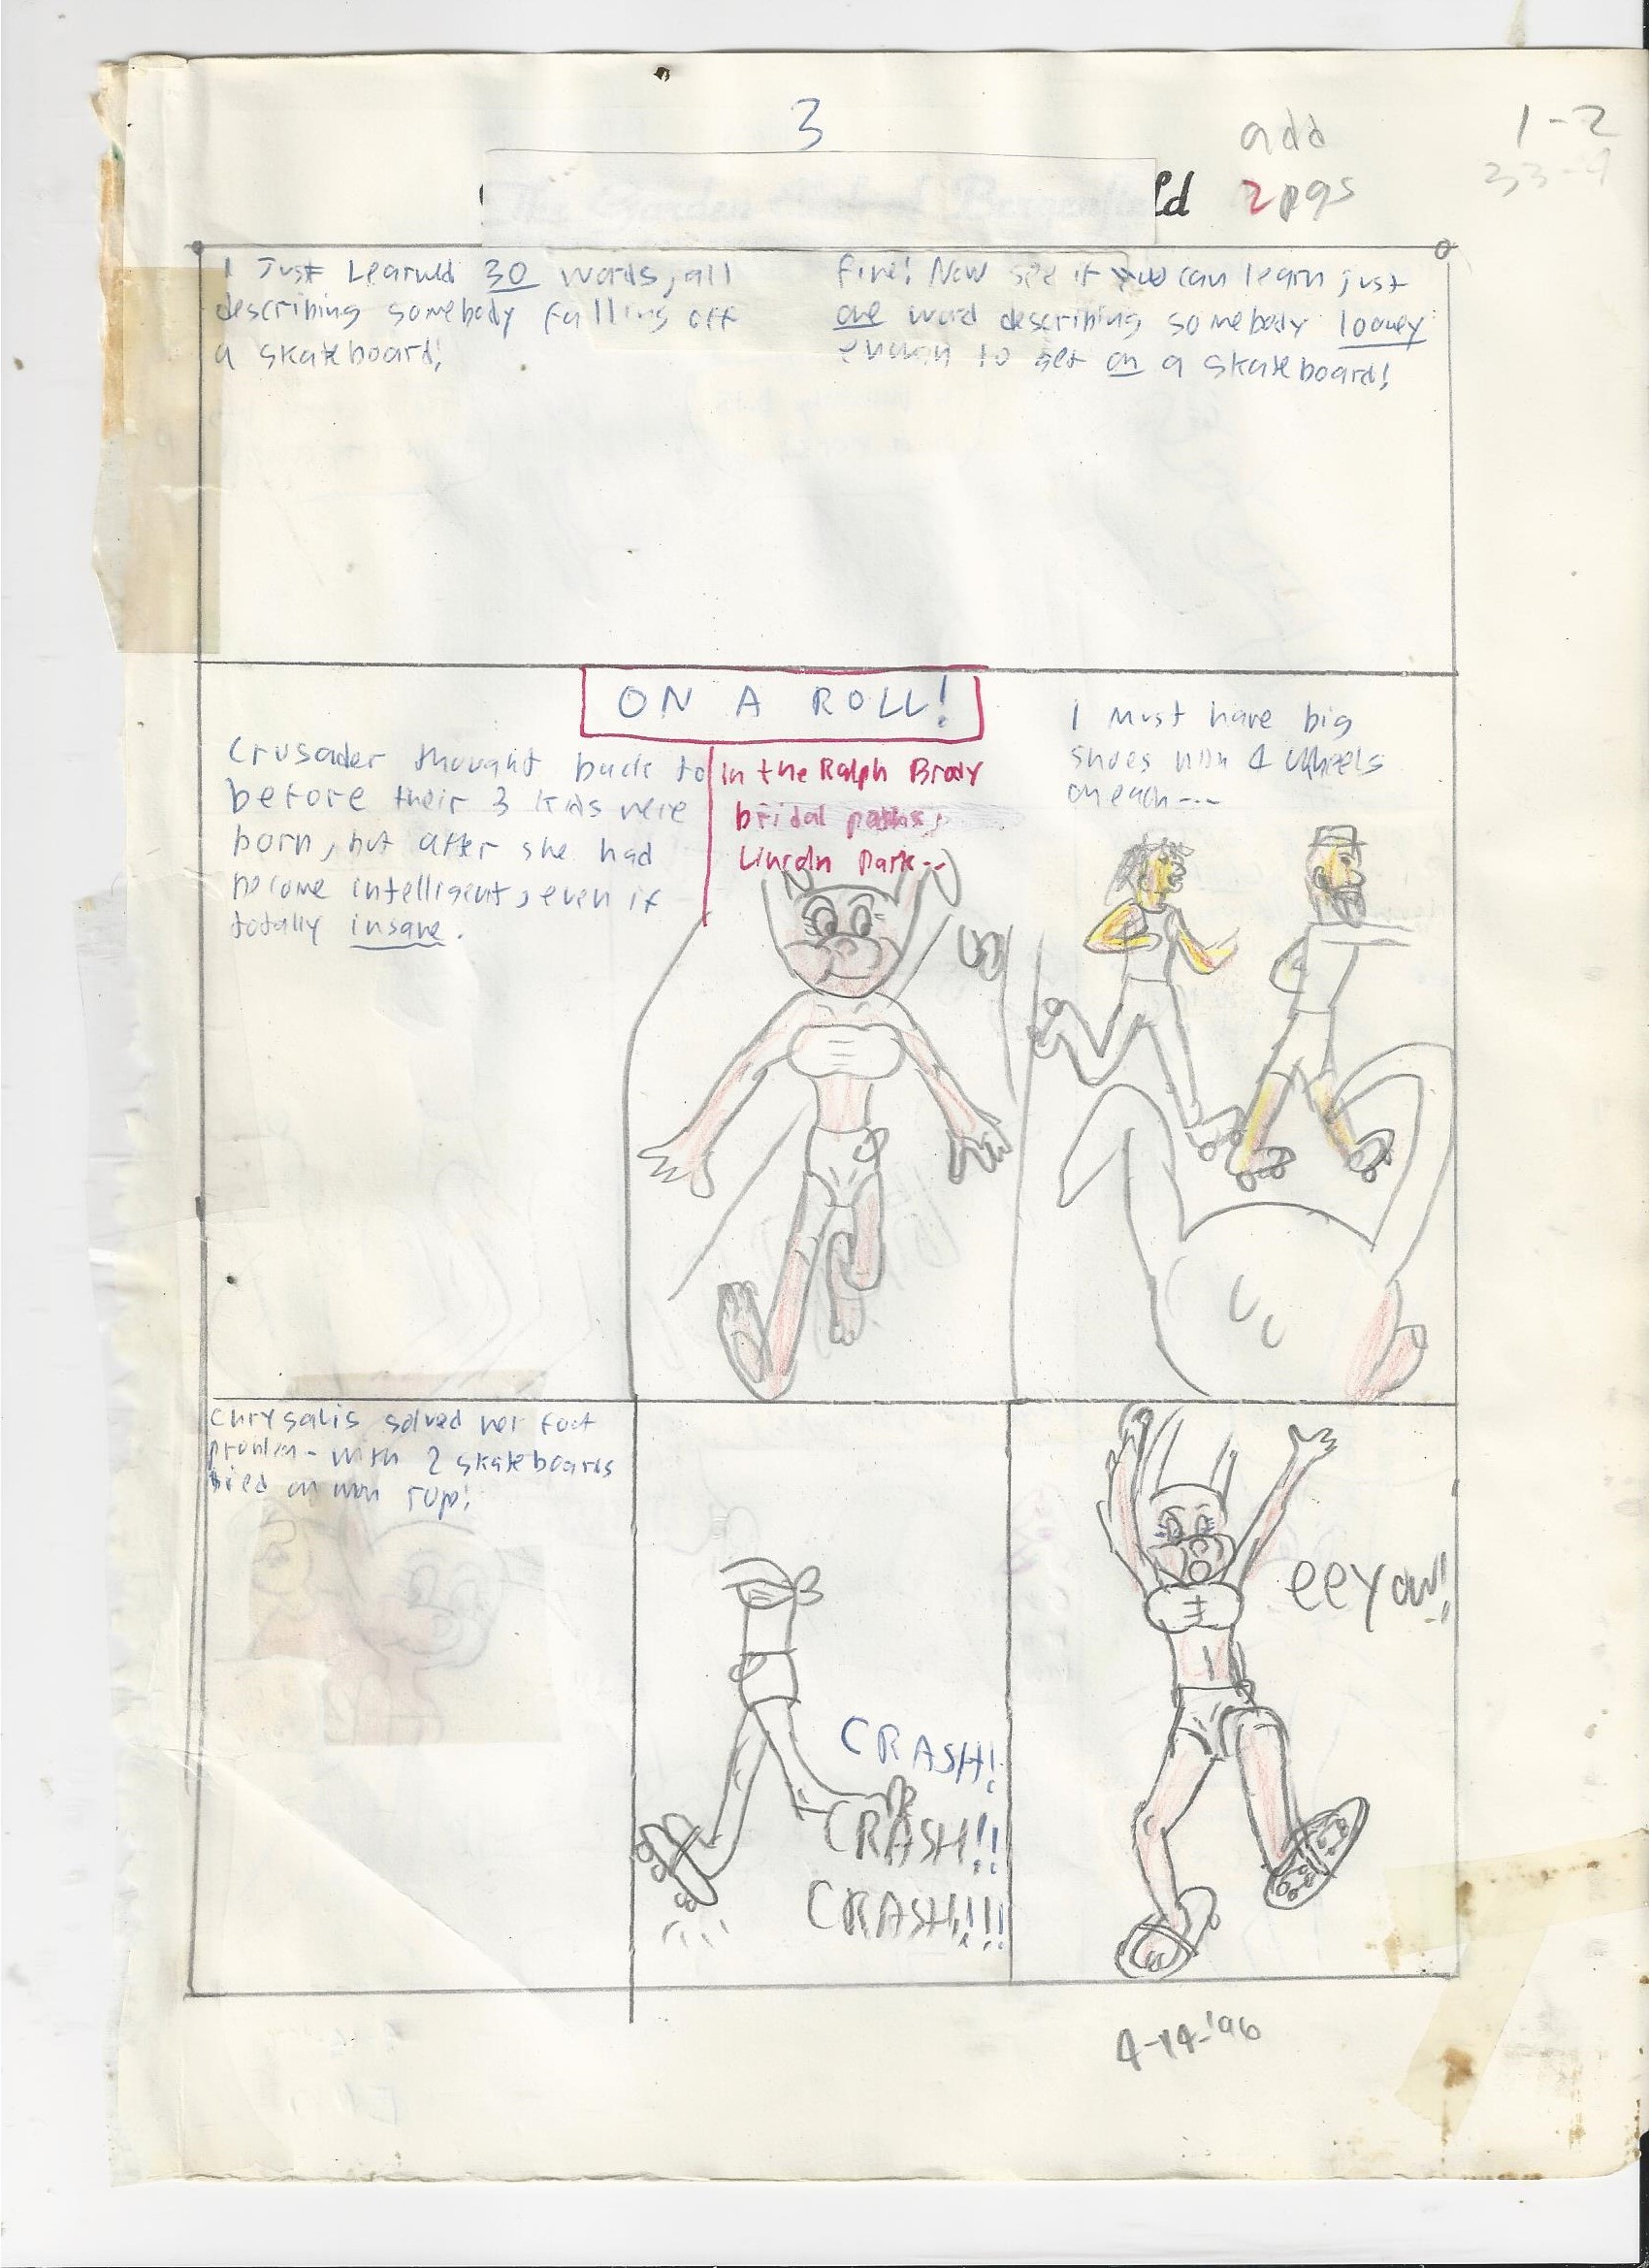 3
add
1-2
33-4
The Garden of Bergenfield
2 pgs
I Just Learned 30 words, all
describing somebody falling off
a skateboard!
Fine! Now see if you can learn just
one word describing somebody looney
enough to get on a skateboard!
ON A ROLL!
Crusader thought back to
before their 3 kids were
born, but after she had
become intelligent, even if
totally insane.
In the Ralph Brody
bridal paths,
Lincoln Park--
I must have big
shoes with 4 wheels
on each---
Chrysalis solved her foot
problem- with 2 skateboards
tied on with rope!
CRASH!
CRASH!!
CRASH!!!
eeyow!
4-14-'96